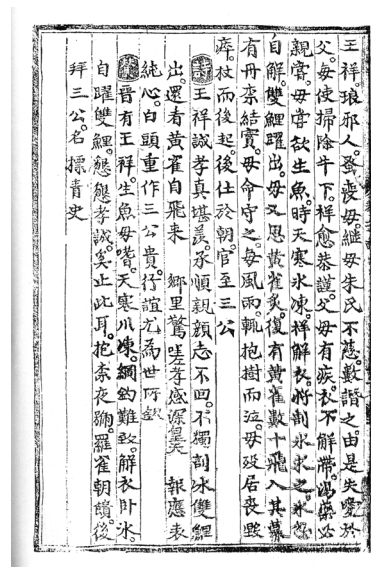 王祥。琅邪人。蚤喪母。繼母朱氏不慈。數譖之。由是失愛於
父。每使掃除牛下。祥愈恭謹。父母有疾。衣不解帶。湯藥必
親嘗。母嘗欲生魚。時天寒氷凍。祥解衣。將剖氷求之。氷忽
自解。雙鯉躍出。母又思黃雀炙。復有黃雀數十飛入其幕
有丹柰結實。母命守之。每風雨。輒抱樹而泣。母歿居喪毁
瘁。杖而後起。後仕於朝。官至三公
王祥誠孝真堪羨。承順親顔志不回。不獨剖氷雙鯉
出。還看黃雀自飛来 鄉里驚嗟孝感深 報應表
純心。白頭重作三公貴。行誼尤為世所欽
晋有王祥。生魚母嗜。天寒川凍。網釣難致。解衣卧氷。
自躍雙鯉。慇慇孝誠。奚止此耳。抱柰夜號。羅雀朝饋。後
拜三公。名標青史